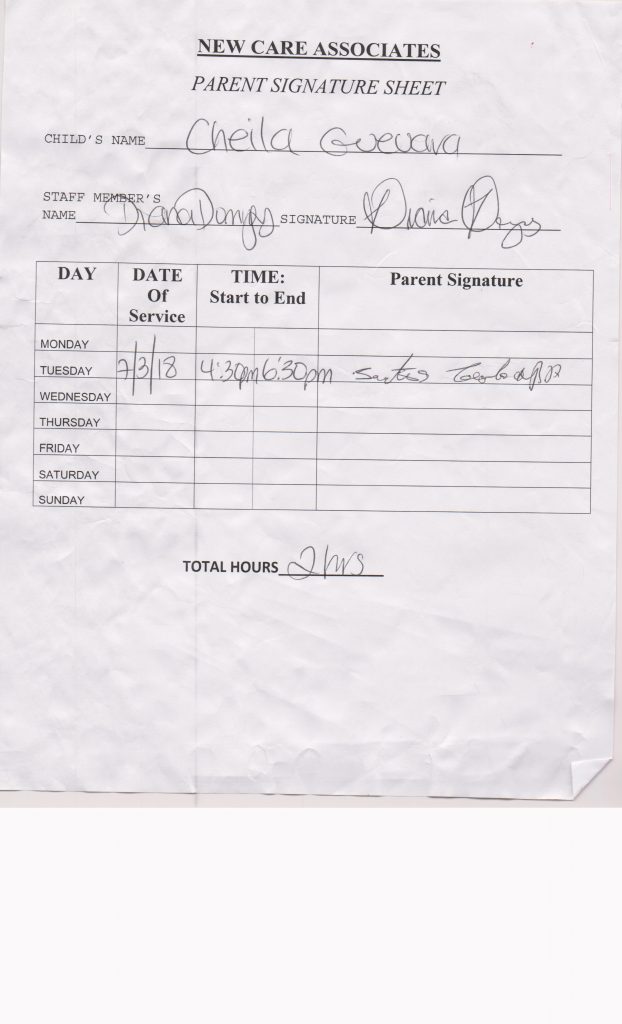 NEW CARE ASSOCIATES
PARENT SIGNATURE SHEET
CHILD'S NAME Cheila Guevara
STAFF MEMBER'S
NAME Diana SIGNATURE Diana
DAY DATE Of Service TIME: Start to End Parent Signature
MONDAY
TUESDAY 7/3/18 4:30pm 6:30pm
WEDNESDAY
THURSDAY
FRIDAY
SATURDAY
SUNDAY
TOTAL HOURS 2hrs